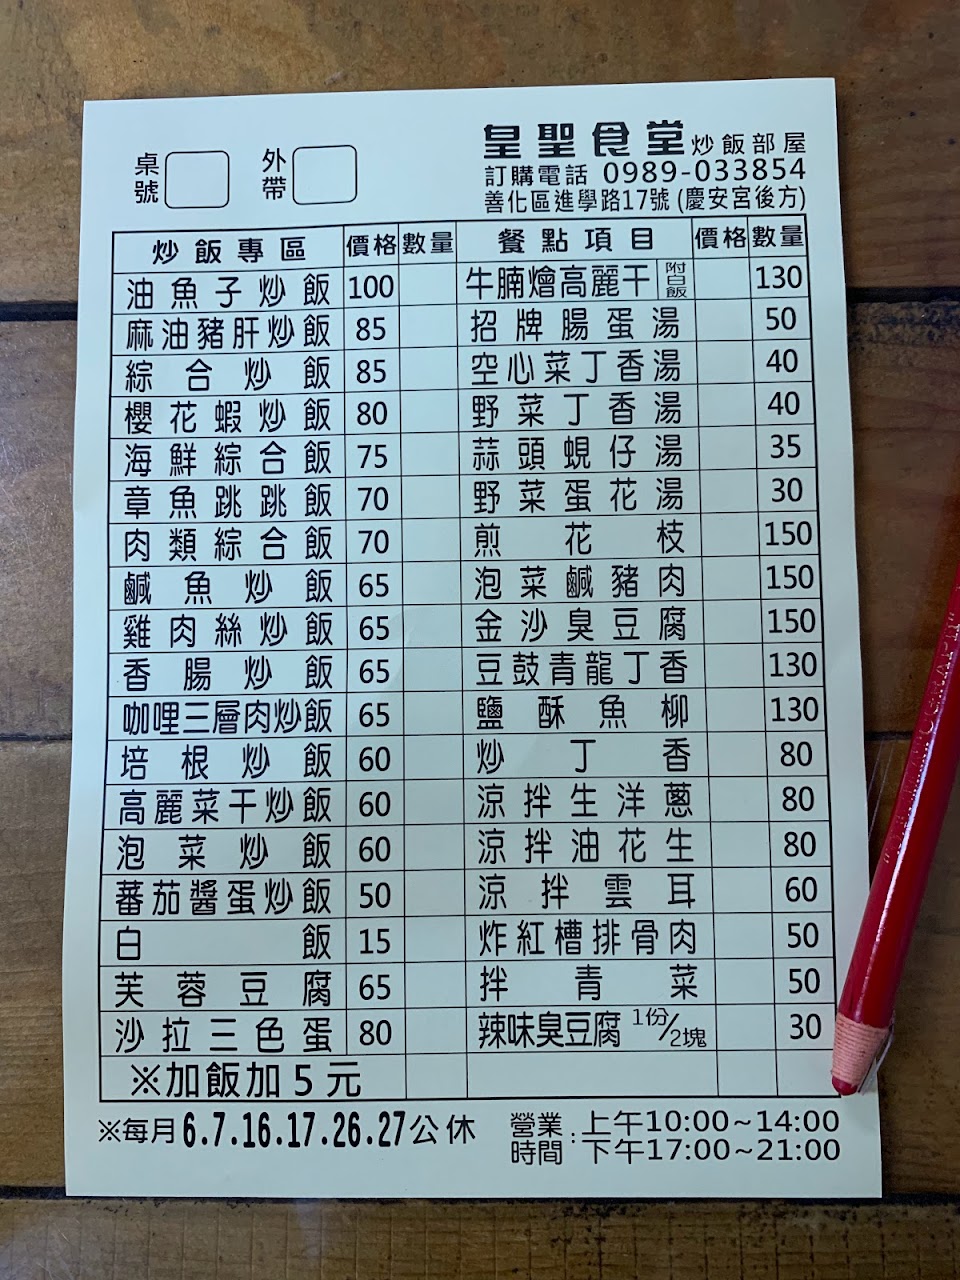 桌號
外帶
皇聖食堂 炒飯部屋
訂購電話 0989-033854
善化區進學路17號(慶安宮後方)
炒飯專區 價格 數量 餐點項目 價格 數量
油魚子炒飯 100 牛腩燴高麗干 附白飯 130
麻油豬肝炒飯 85 招牌腸蛋湯 50
綜合炒飯 85 空心菜丁香湯 40
櫻花蝦炒飯 80 野菜丁香湯 40
海鮮綜合飯 75 蒜頭蜆仔湯 35
章魚跳跳飯 70 野菜蛋花湯 30
肉類綜合飯 70 煎花枝 150
鹹魚炒飯 65 泡菜鹹豬肉 150
雞肉絲炒飯 65 金沙臭豆腐 150
香腸炒飯 65 豆鼓青龍丁香 130
咖哩三層肉炒飯 65 鹽酥魚柳 130
培根炒飯 60 炒丁香 80
高麗菜干炒飯 60 涼拌生洋蔥 80
泡菜炒飯 60 涼拌油花生 80
蕃茄醬蛋炒飯 50 涼拌雲耳 60
白飯 15 炸紅槽排骨肉 50
芙蓉豆腐 65 拌青菜 50
沙拉三色蛋 80 辣味臭豆腐 1份/2塊 30
※加飯加5元
※每月6.7.16.17.26.27公休
營業時間:上午10:00~14:00
下午17:00~21:00